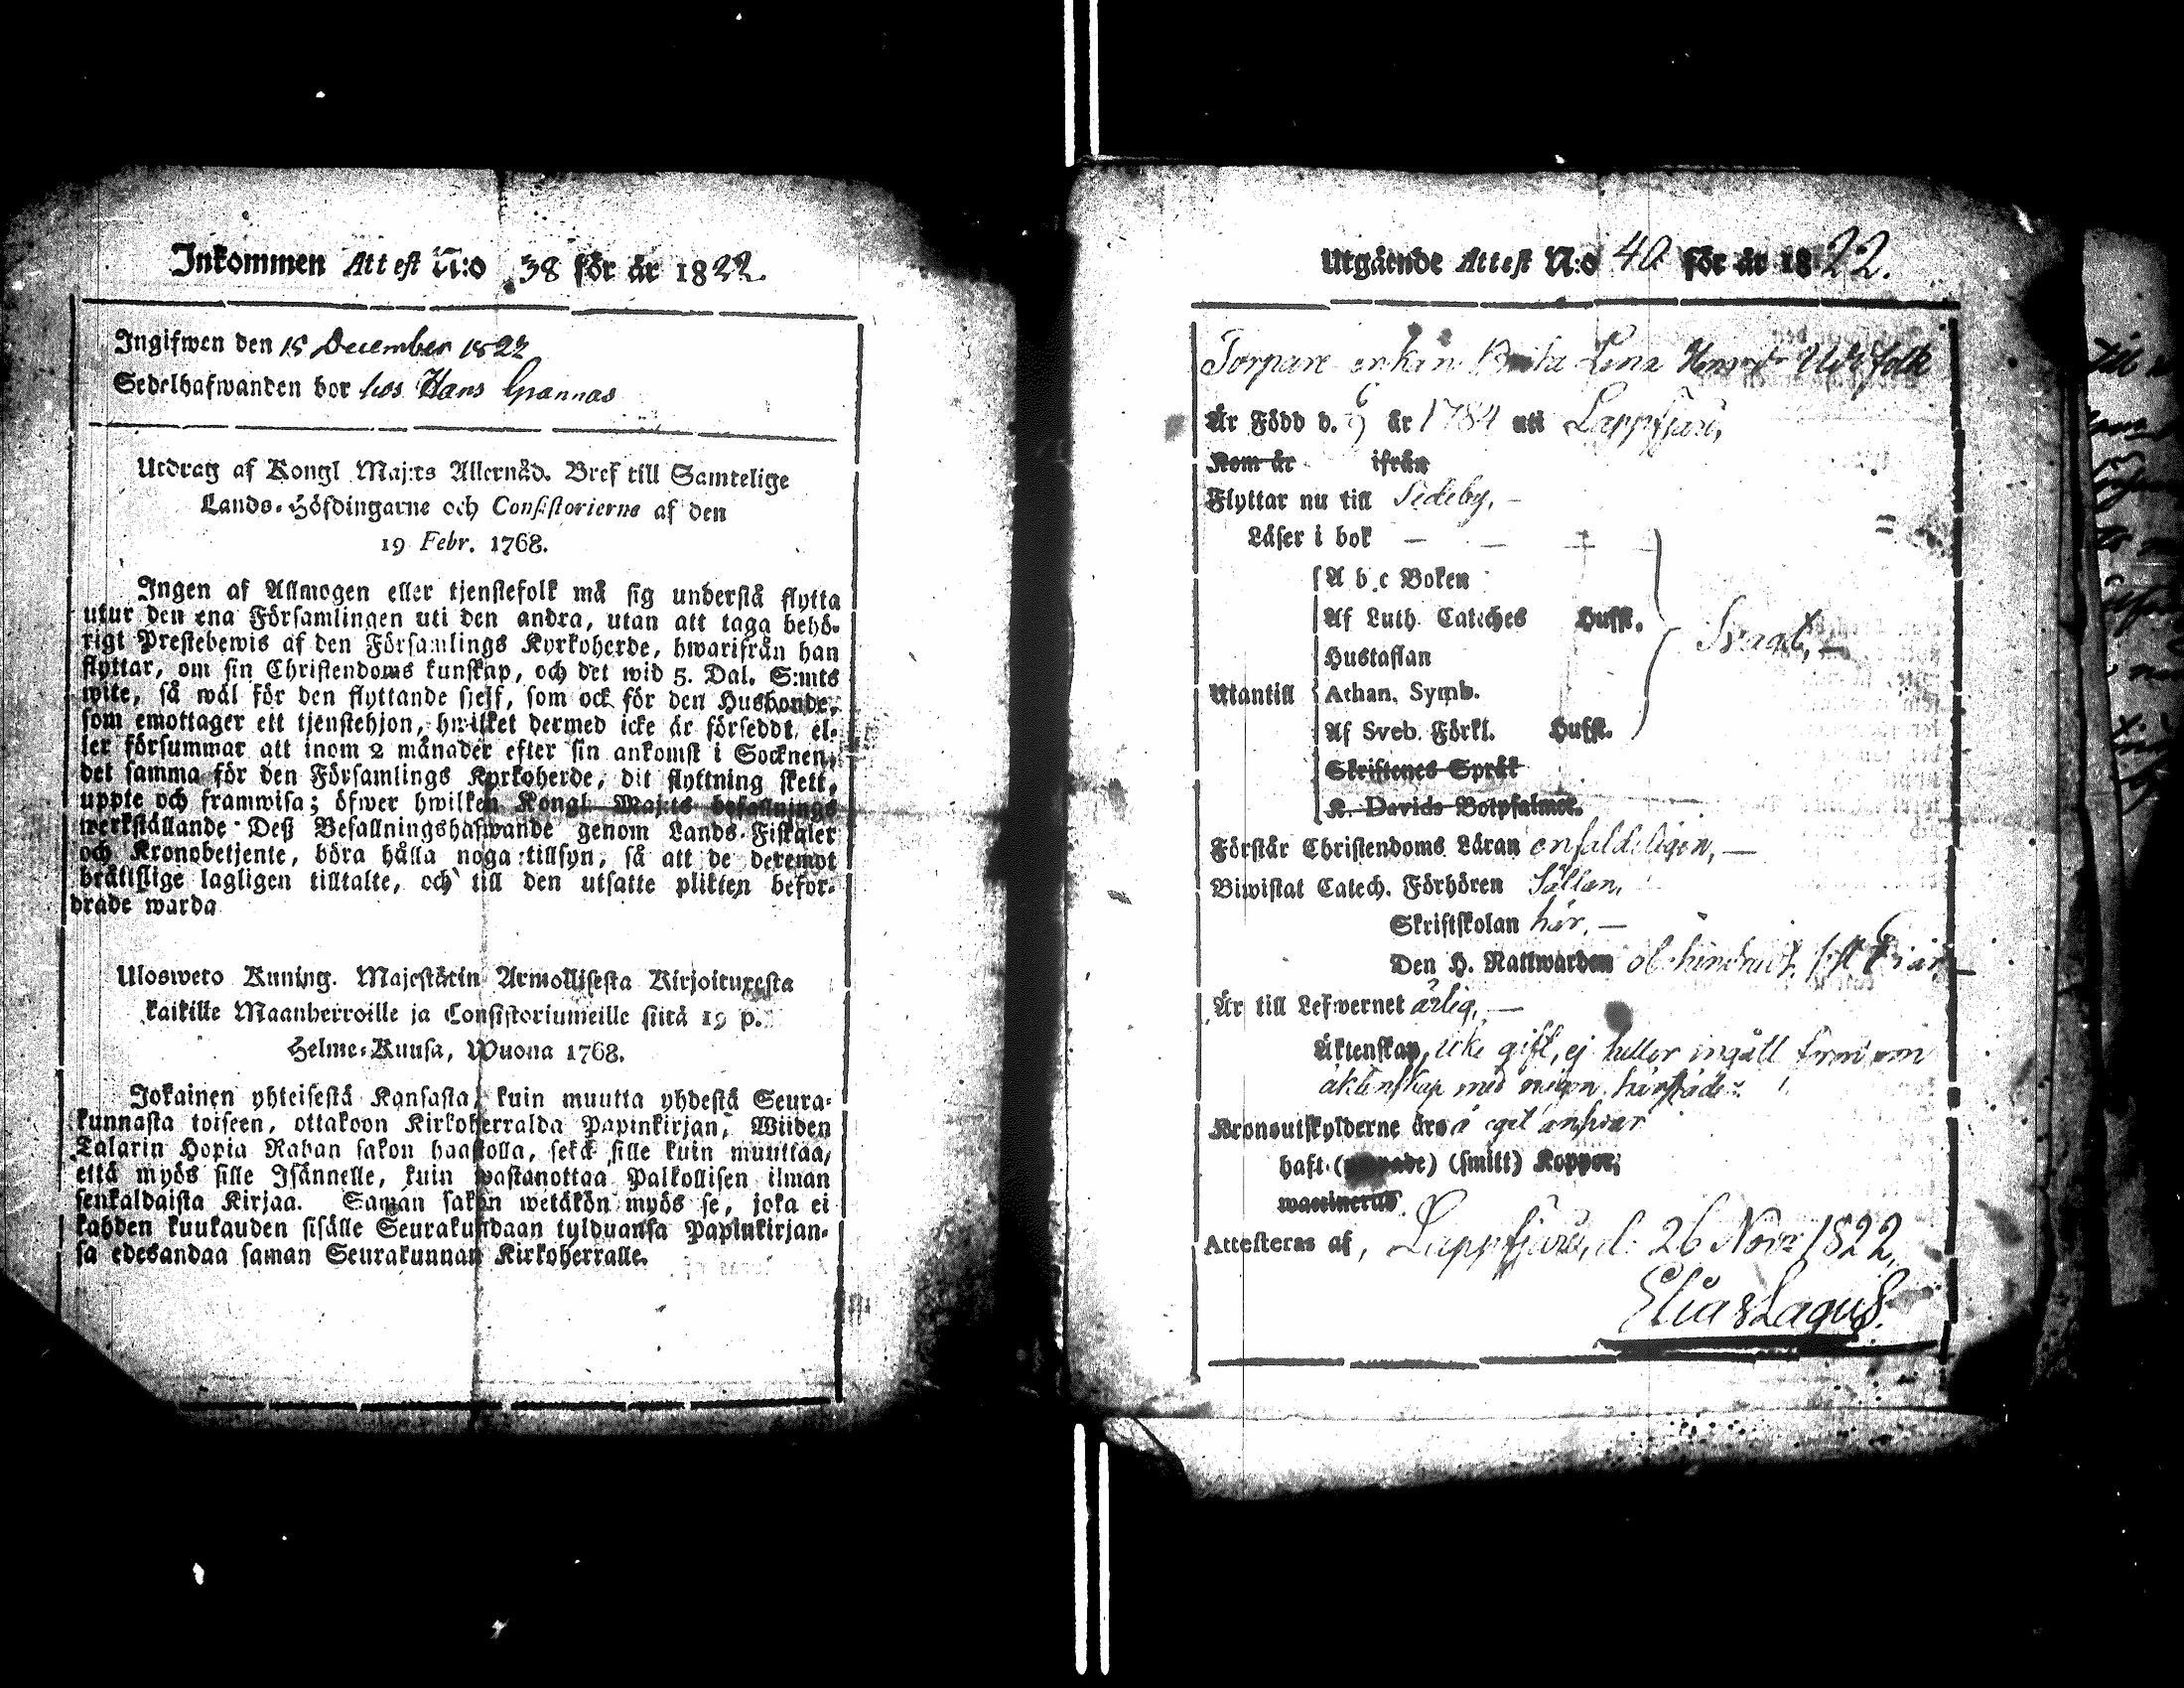 Inkommen Attest N:o 38 för år 1822.
Ingifwen den 15 December 1822
Sedelhafwanden bor hos Hans Grannas
Utdrag af Kongl Maj:ts Allernåd. Bref till Samtelige
Lands-Höfdingarne och Consistorierne af den
19 Febr. 1768.
Ingen af Allmogen eller tjenstefolk må sig understå flytta
utur den ena Församlingen uti den andra, utan att taga behö-
rigt Prestebewis af den Församlings Kyrkoherde, hwarifrån han
flyttar, om sin Christendoms kunskap, och det wid 5. Dal. S:mts
wite, så wäl för den flyttande sjelf, som ock för den Husbonde,
som emottager ett tjenstehjon, hwilket dermed icke är försedt, el-
ler försummar att inom 2 månader efter sin ankomst i Socknen,
det samma för den Församlings Kyrkoherde, dit flyttning skett,
uppte och framwisa; öfwer hwilken Kongl Maj:ts befallnings
werkställande Deß Befallningshafwande genom Lands-Fiskaler
och Kronobetjente, böra hålla noga tillsyn, så att de deremot
brättslige lagligen tilltalte, och till den utsatte plikten befor-
drade warda
Ulosweto Kuning. Majestätin Armollisesta Kirjoituxesta
kaikille Maanherroille ja Consistoriumeille siitä 19 p.
Helme-Kuusa, Wuona 1768.
Jokainen yhteisestä Kansasta, kuin muutta yhdestä Seura-
kunnasta toiseen, ottakoon Kirkoherralda Papinkirjan, Wiiden
Talarin Hopia Rahan sakon haastolla, sekä sille kuin muuttaa,
että myös sille Isännelle, kuin wastanottaa Palkollisen ilman
senkaldaista Kirjaa. Saman sakon wetäkön myös se, joka ei
kahden kuukauden sisälle Seurakundaan tulduansa Papinkirjan-
sa edesandaa saman Seurakunnan Kirkoherralle.
Utgående Attest N:o 40 för år 1822.
Torpare enkan Brita Lena Utfolk
Är Född d. 9 6 år 1784 uti Lappfjärd,
Kom år ifrån
Flyttar nu till Sideby, —
Läser i bok — —
A b c Boken
Af Luth. Cateches Hufst.
Hustaflan
Utantill Athan. Symb.
Svagt, —
Af Sveb. Förkl. Hufst.
Skriftenes Språk
K. Davids Botpsalmer.
Förstår Christendoms Läran enfaldeligen, —
Biwistat Catech. Förhören Sällan,
Skriftskolan här, —
Den H. Nattwarden obehindradt,
Är till Lefwernet ärlig, —
Äktenskap, icke gift, ej heller ingått
äktenskap med någon härstädes.
Kronoutskylderne å eget ansvar
haft ( ) (smitt) Koppor;
waccinerad.
Attesteras af, Lappfjärd, d. 26 Novr 1822,
Elias Lagus.